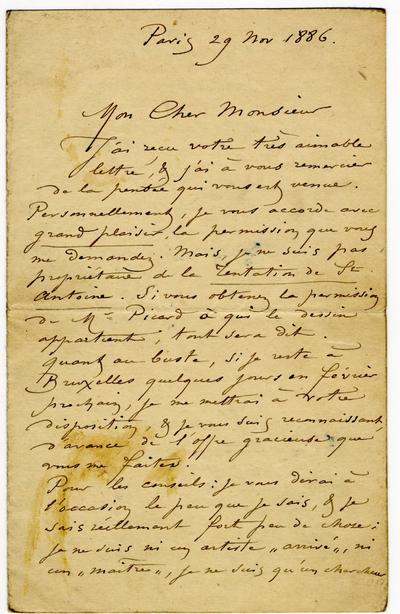 Paris 29 Nov 1886.
Mon Cher Monsieur
J'ai recu votre très aimable
lettre, & j'ai à vous remercier
de la pensée qui vous est venue.
Personnellement, je vous accorde avec
grand plaisir, la permission que vous
me demandez. Mais, je ne suis pas
propriétaire de la Tentation de St
Antoine. Si vous obtenez la permission
de Mr Picard à qui le dessin
appartient, tout sera dit.
quant au buste, si je reste à
Bruxelles quelques jours en février
prochain, je me mettrai à votre
disposition, & je vous suis reconnaissant
d'avance de l'offre gracieuse que
vous me faites.
Pour les conseils: je vous dirai à
l'occasion le peu que je sais, & je
sais réellement fort peu de chose;
je ne suis ni un artiste „arrivé„, ni
un „maître„, je ne suis qu'un chercheur